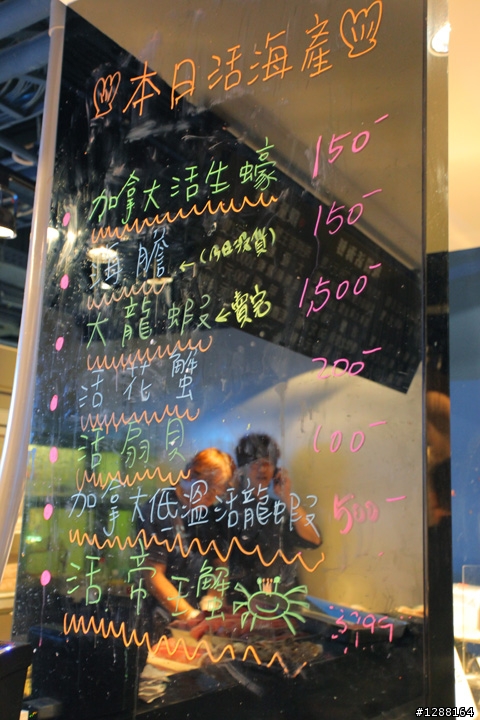 本日活海產
加拿大活生蠔 150-
海膽 ←(今日現貨) 150-
大龍蝦 ←賣完 1,500-
活花蟹 200-
活扇貝 100-
加拿大低溫活龍蝦 500-
活帝王蟹
#1288164